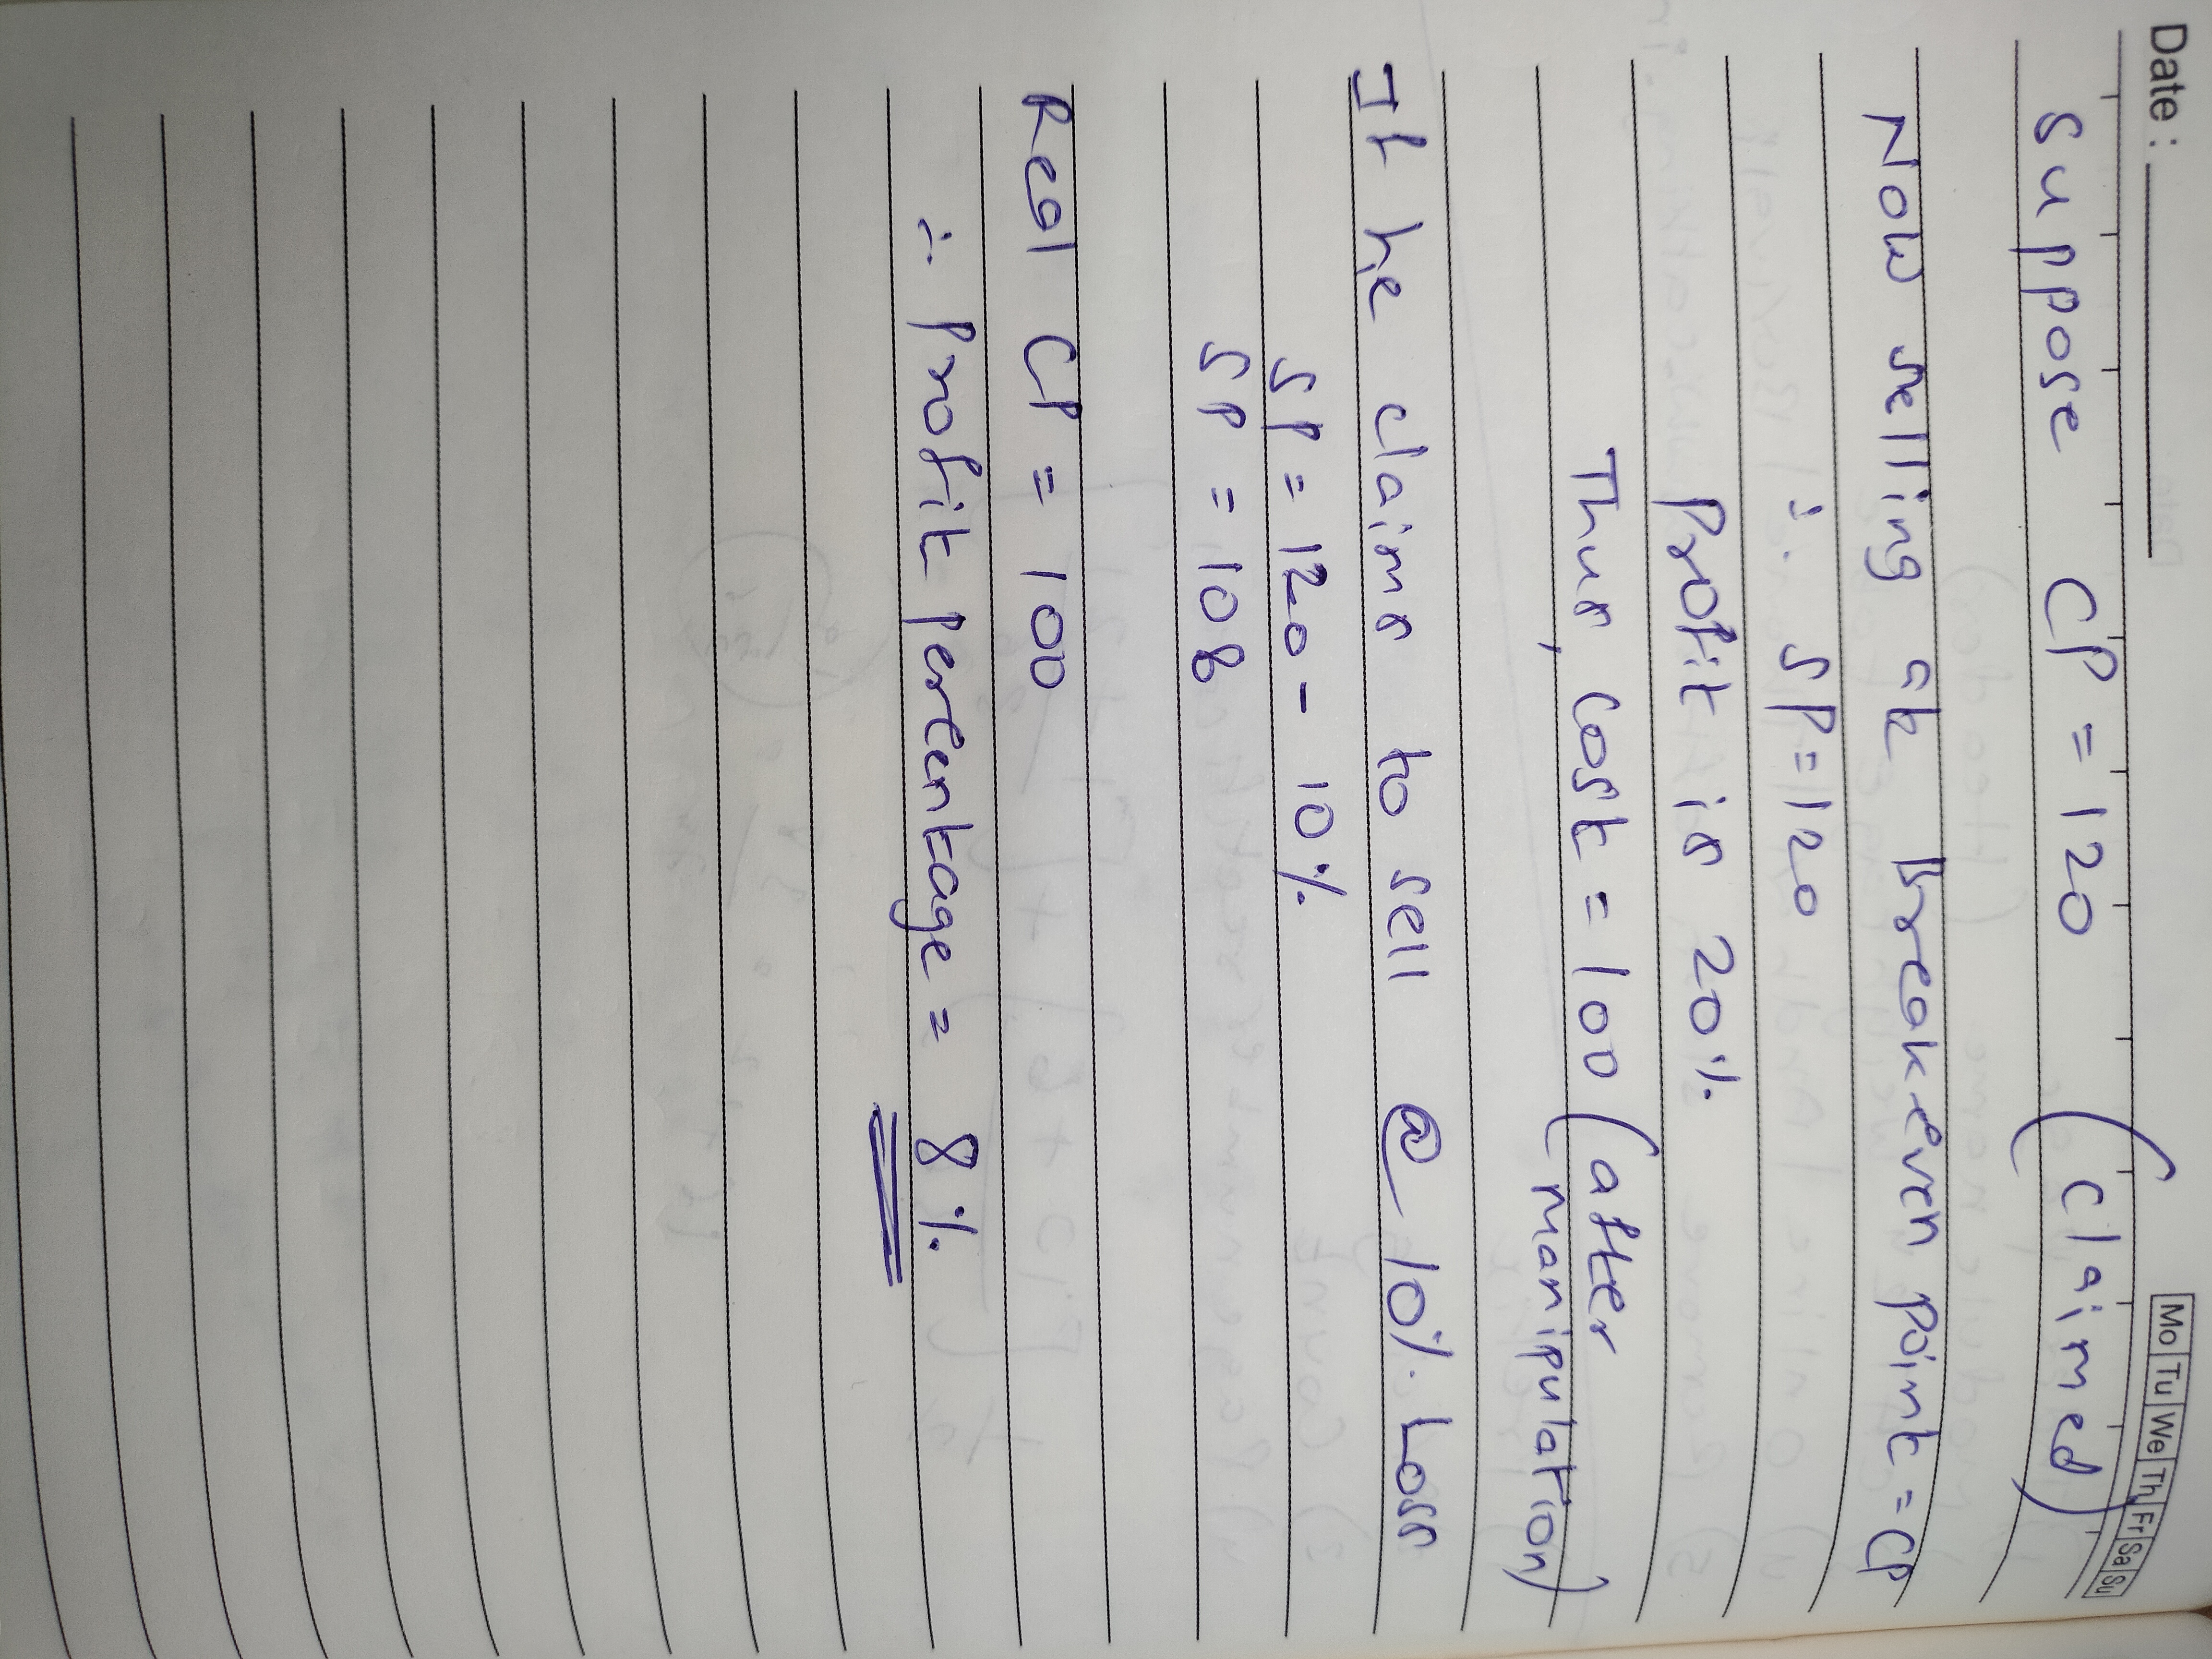 Date :
Mo Tu We Th Fr Sa Su
suppose CP = 120 (claimed)
Now selling at breakeven point = CP
∴ SP = 120
Profit is 20%
Thus, cost = 100 (after
manipulation)
If he claims to sell @ 10% Loss
SP = 120 - 10%
SP = 108
Real CP = 100
∴ Profit percentage = 8%